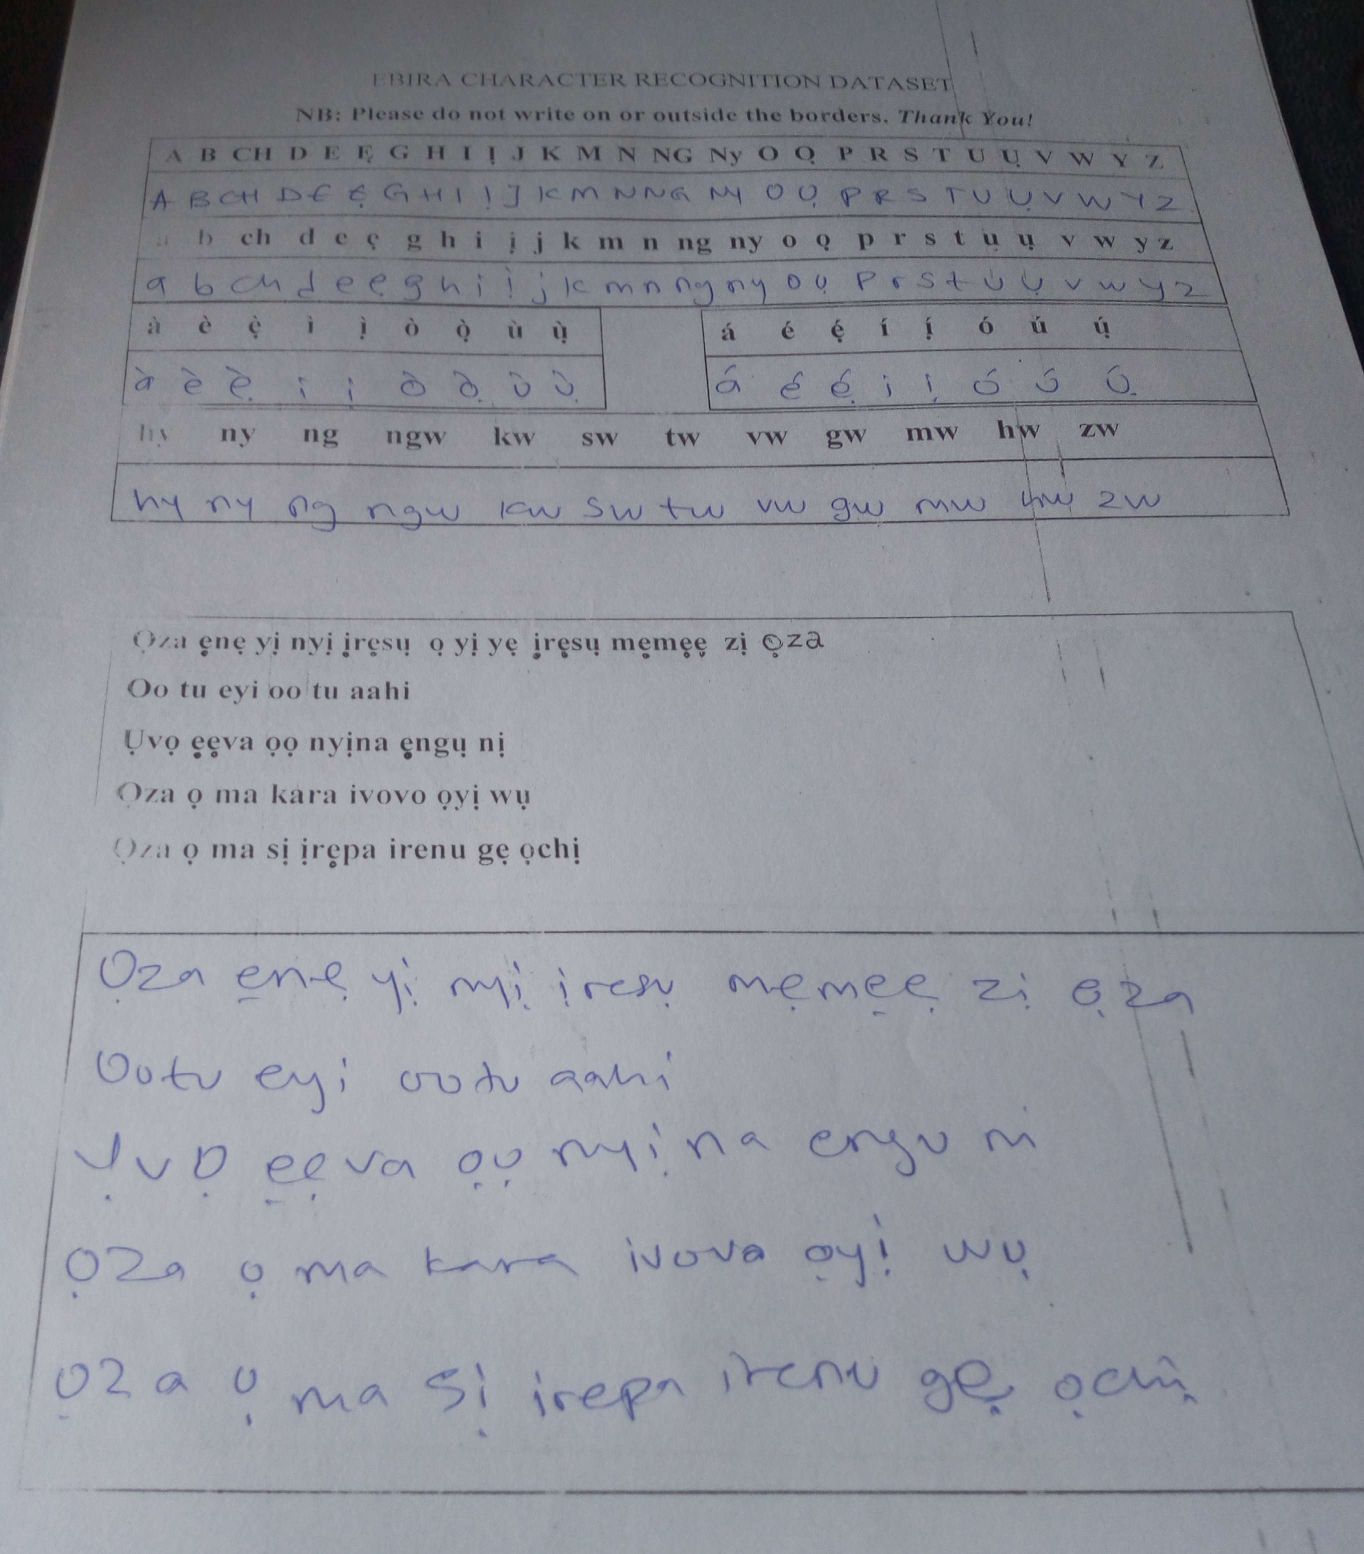 EBIRA CHARACTER RECOGNITION DATASET
NB: Please do not write on or outside the borders. Thank You!
A B CH D E Ẹ G H I Ị J K M N NG Ny O Ọ P R S T U Ụ V W Y Z
A B CH D E Ẹ G H I Ị J K M N NG NY O Ọ P R S T U Ụ V W Y Z
a b ch d e ẹ g h i ị j k m n ng ny o ọ p r s t ụ ụ v w y z
a b ch d e ẹ g h i ị j k m n ng ny o ọ p r s t u ụ v w y z
à è ẹ̀ ì ị̀ ò ọ̀ ù ụ̀ á é ẹ́ í ị́ ó ú ụ́
à è ẹ̀ i ị ò ọ̀ ù ụ̀ á é ẹ́ i ị ó ú ụ́
hy ny ng ngw kw sw tw vw gw mw hw zw
hy ny ng ngw kw sw tw vw gw mw hw zw
Ọza ẹnẹ yị nyị ịrẹsụ ọ yị yẹ ịrẹsụ mẹmẹẹ zị ọza
Oo tu eyi oo tu aahi
Ụvọ ẹẹva ọọ nyịna ẹngụ nị
Ọza ọ ma kara ivovo ọyị wụ
Ọza ọ ma sị ịrẹpa irenu gẹ ọchị
Ọza ẹnẹ yị nyị ịresụ mẹmẹẹ zị ọza
Oo tu eyi oo tu aahi
Ụvọ ẹẹva ọọ nyịna engu ni
Ọza ọ ma kara ivova ọyị wụ
Ọza ọ ma sị irepa irenu gẹ ọchị